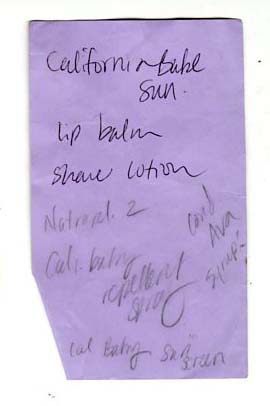 California Babe
Sun.
lip balm
shave lotion
Natrapel. 2
Cali. baby
repellent
spray
cond
Ava
Cal Baby Sun
Screen